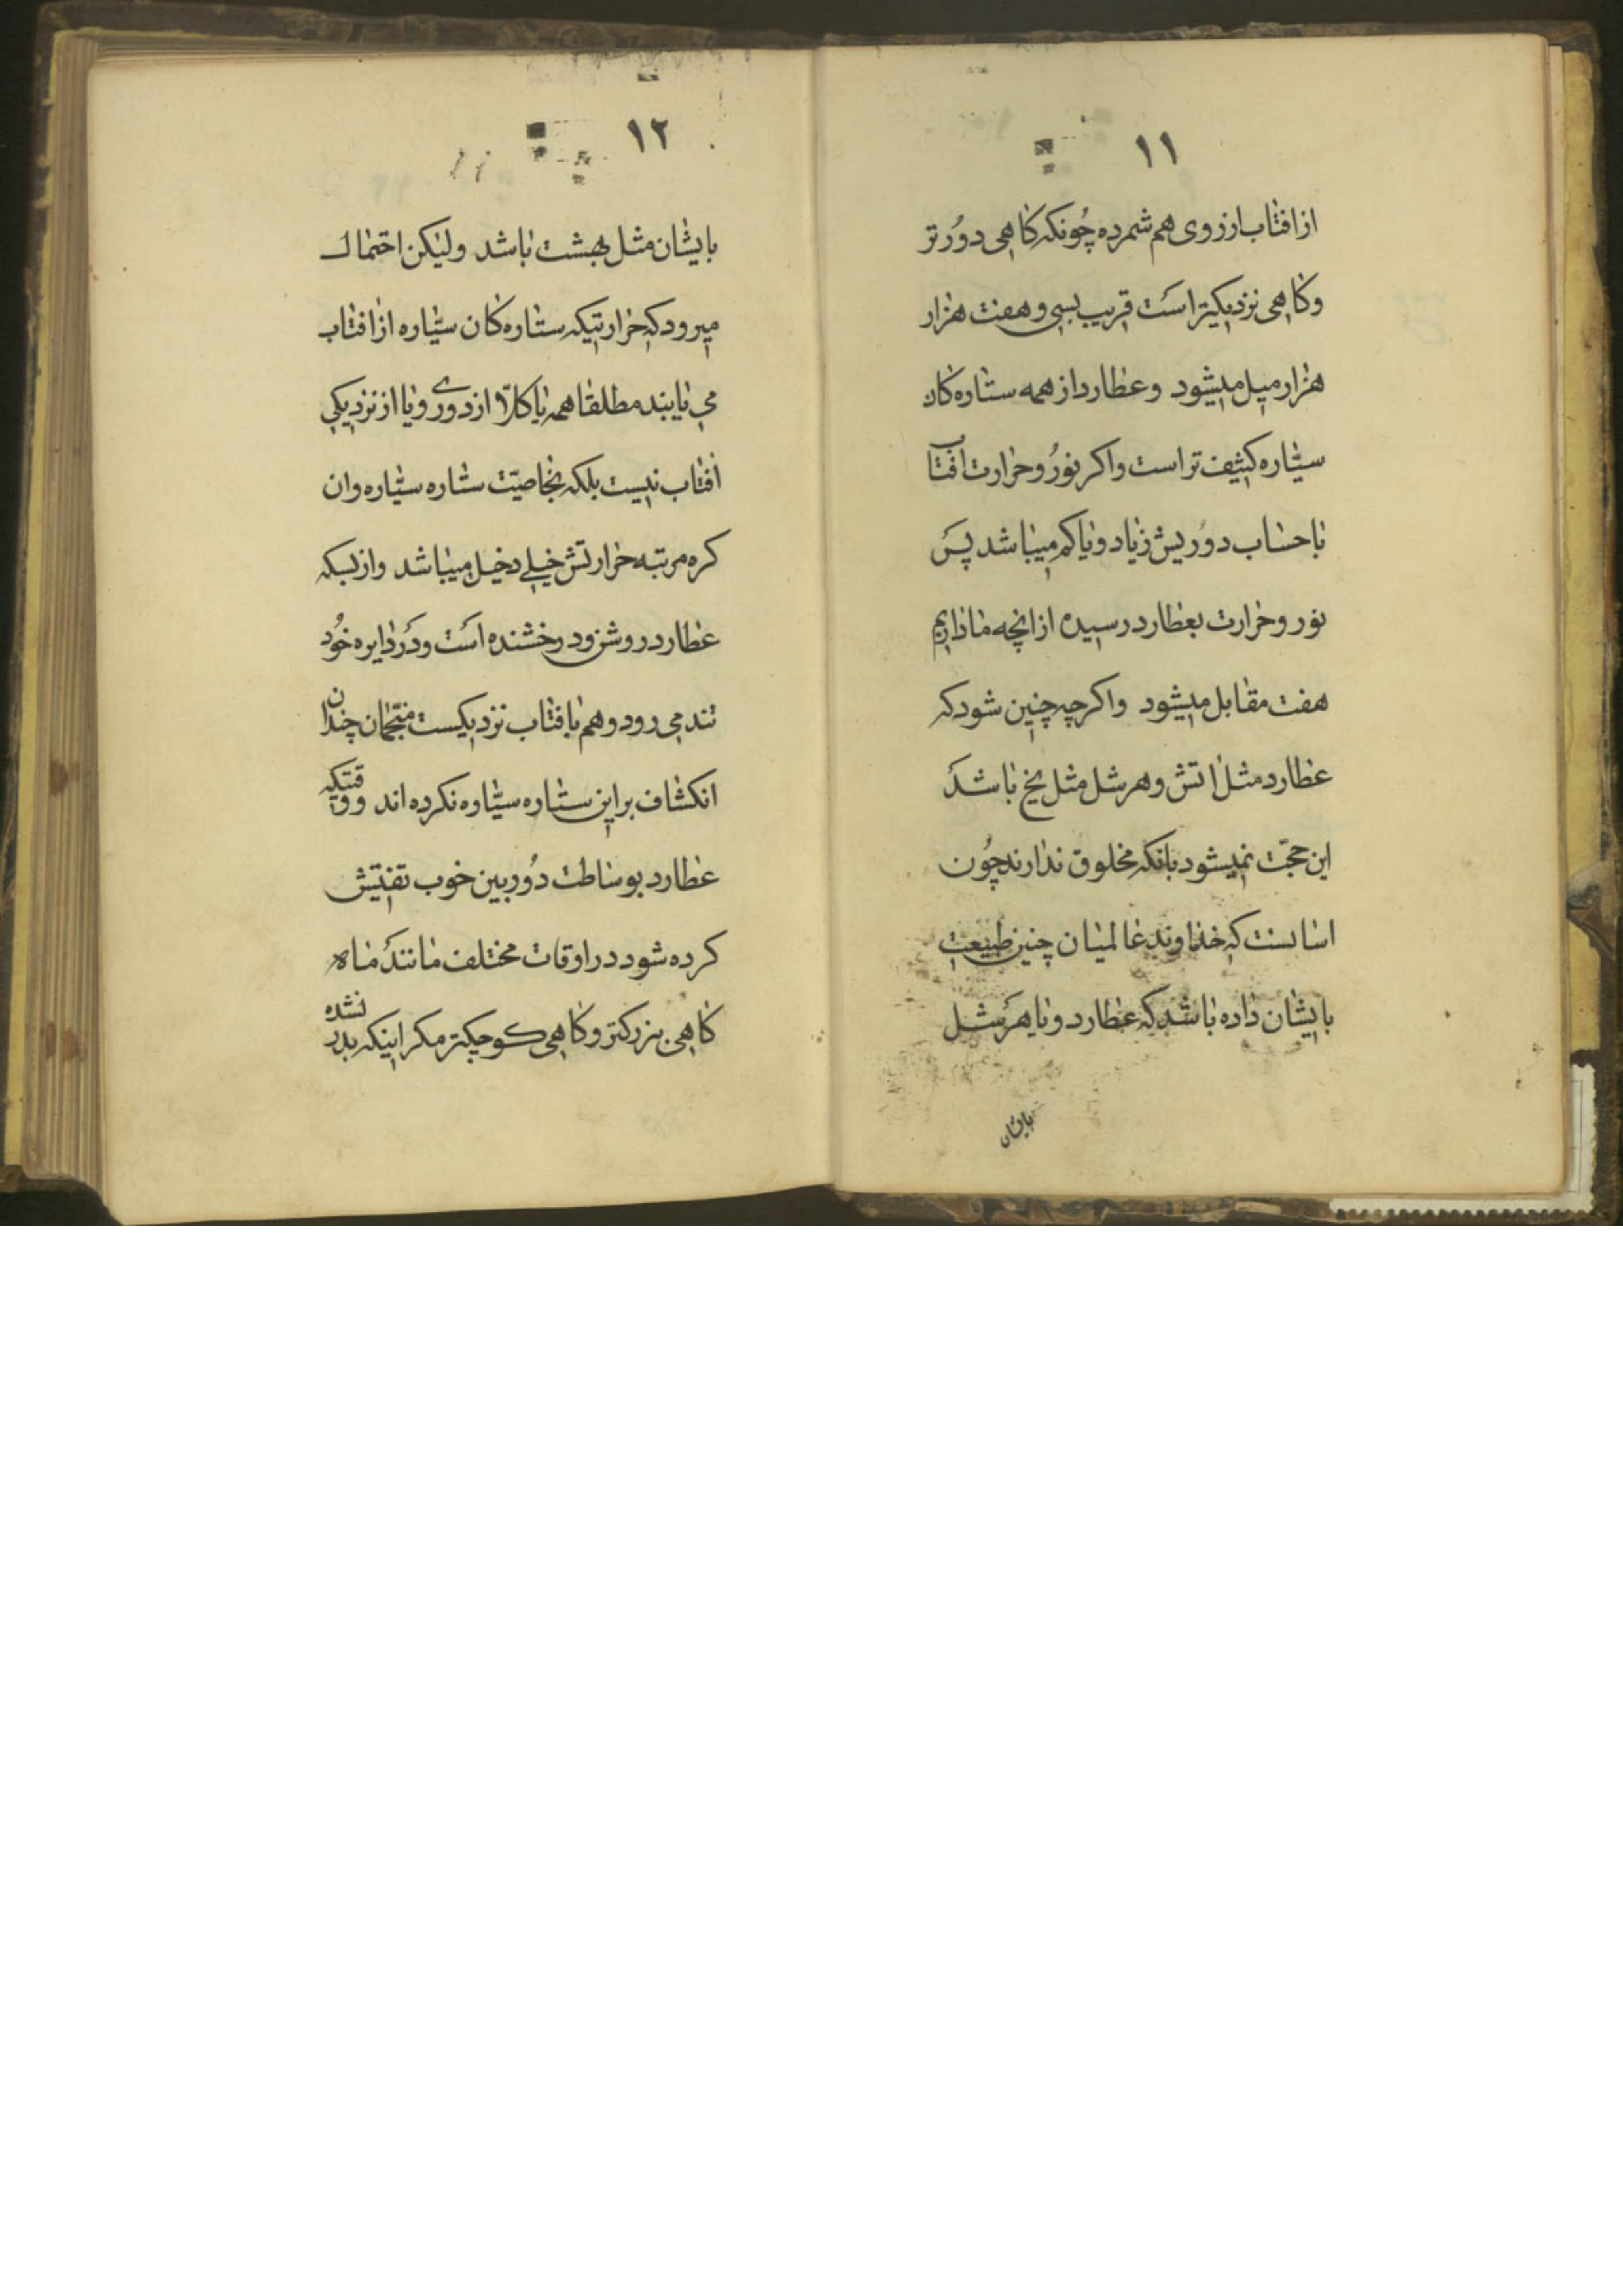 ۱۱
از افتاب از روی هم شمرده چُونکه کاهی دوُرتر
و کاهی نزدیکتر است قریب بسی و هفت هزار
هزار میل میشود و عطارد از همه ستاره کان
سیّاره کثیف تر است و اکر نوُر و حرارت افتاب
با حساب دوُریش زیاد و یا کم میباشد پس
نور و حرارت بعطارد رسیده از انچه ما داریم
هفت مقابل میشود و اکرچه چنین شود که
عطارد مثل اتش و هرشل مثل یخ باشد
این حجّت نمیشود بانکه مخلوق ندارند چوُن
اسانست که خداوند عالمیان چنین طبیعت
بایشان داده باشد که عطارد و یا هرشل
بایشان
۱۲
بایشان مثل بهشت باشد ولیکن احتمال
میرود که حرارتیکه ستاره کان سیّاره از افتاب
می یابند مطلقا همه یا کلاّ از دوری و یا از نزدیکی
افتاب نیست بلکه بخاصیّت ستاره سیّاره و ان
کره مرتبه حرارتش خیلی دخیل میباشد و از بسکه
عطارد روشن و درخشنده است و در دایره خوُد
تند می رود و هم بافتاب نزدیکست منجّمان چندان
انکشاف بر این ستاره سیّاره نکرده اند و وقتیکه
عطارد بوساطت دوُربین خوب تفتیش
کرده شود در اوقات مختلف مانند ماه
کاهی بزرکتر و کاهی کوچکتر مکر اینکه بدر نشده